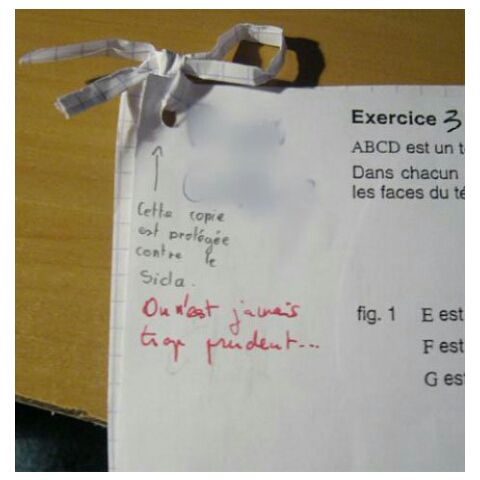 Exercice 3
ABCD est un t
Dans chacun
les faces du té
Cette copie
est protégée
contre le
Sida.
On n'est jamais
trop prudent...
fig. 1 E est
F est
G es